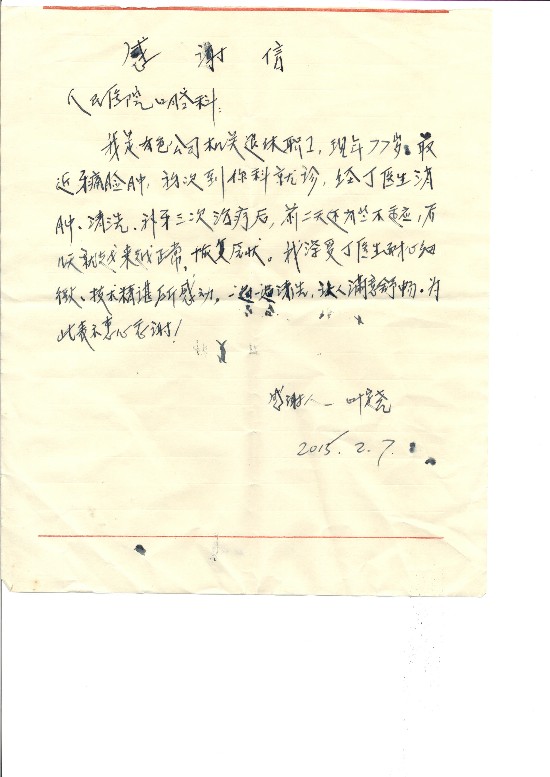 感谢信
人民医院口腔科:
我是有色公司机关退休职工,现年77岁。最
近牙痛脸肿,初次到你科就诊,经丁医生消
肿、清洗、补牙三次治疗后,前二天还有些不适应,后
几天就越来越正常,恢复原状。我深受丁医生耐心细
微、技术精湛所感动,一遍一遍清洗,让人满意舒畅。为
此表示衷心感谢!
感谢人—叶
2015.2.7.